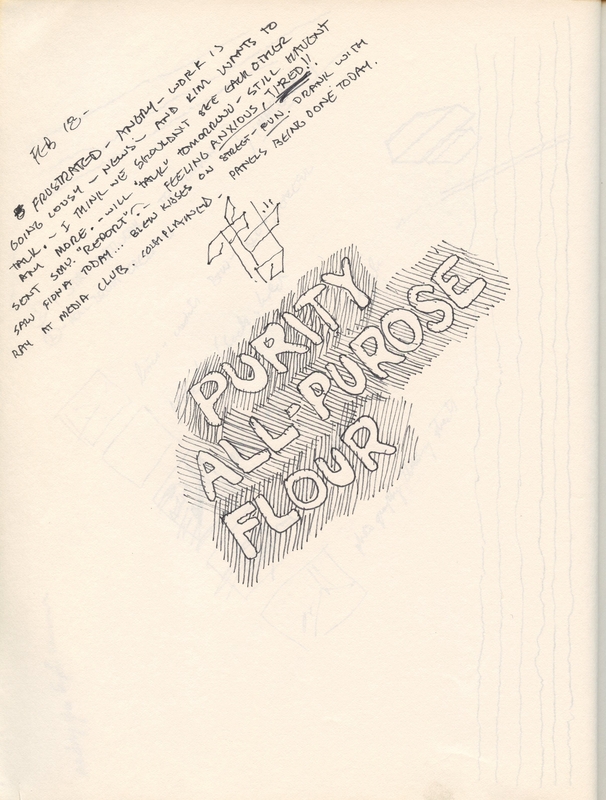 FEB 18-
FRUSTRATED - ANGRY - WORK IS
GOING LOUSY - NEWS - AND KIM WANTS TO
TALK. - I THINK WE SHOULDN'T SEE EACH OTHER
ANY MORE. - WILL "TALK" TOMORROW - STILL HAVENT
SENT SMU. "REPORT" - FEELING ANXIOUS, TIRED!!
SAW FIONA TODAY... BLEW KISSES ON STREET - FUN. DRANK WITH
RAY AT MEDIA CLUB. COMPLAINED - PANELS BEING DONE TODAY.
PURITY
ALL-PUROSE
FLOUR